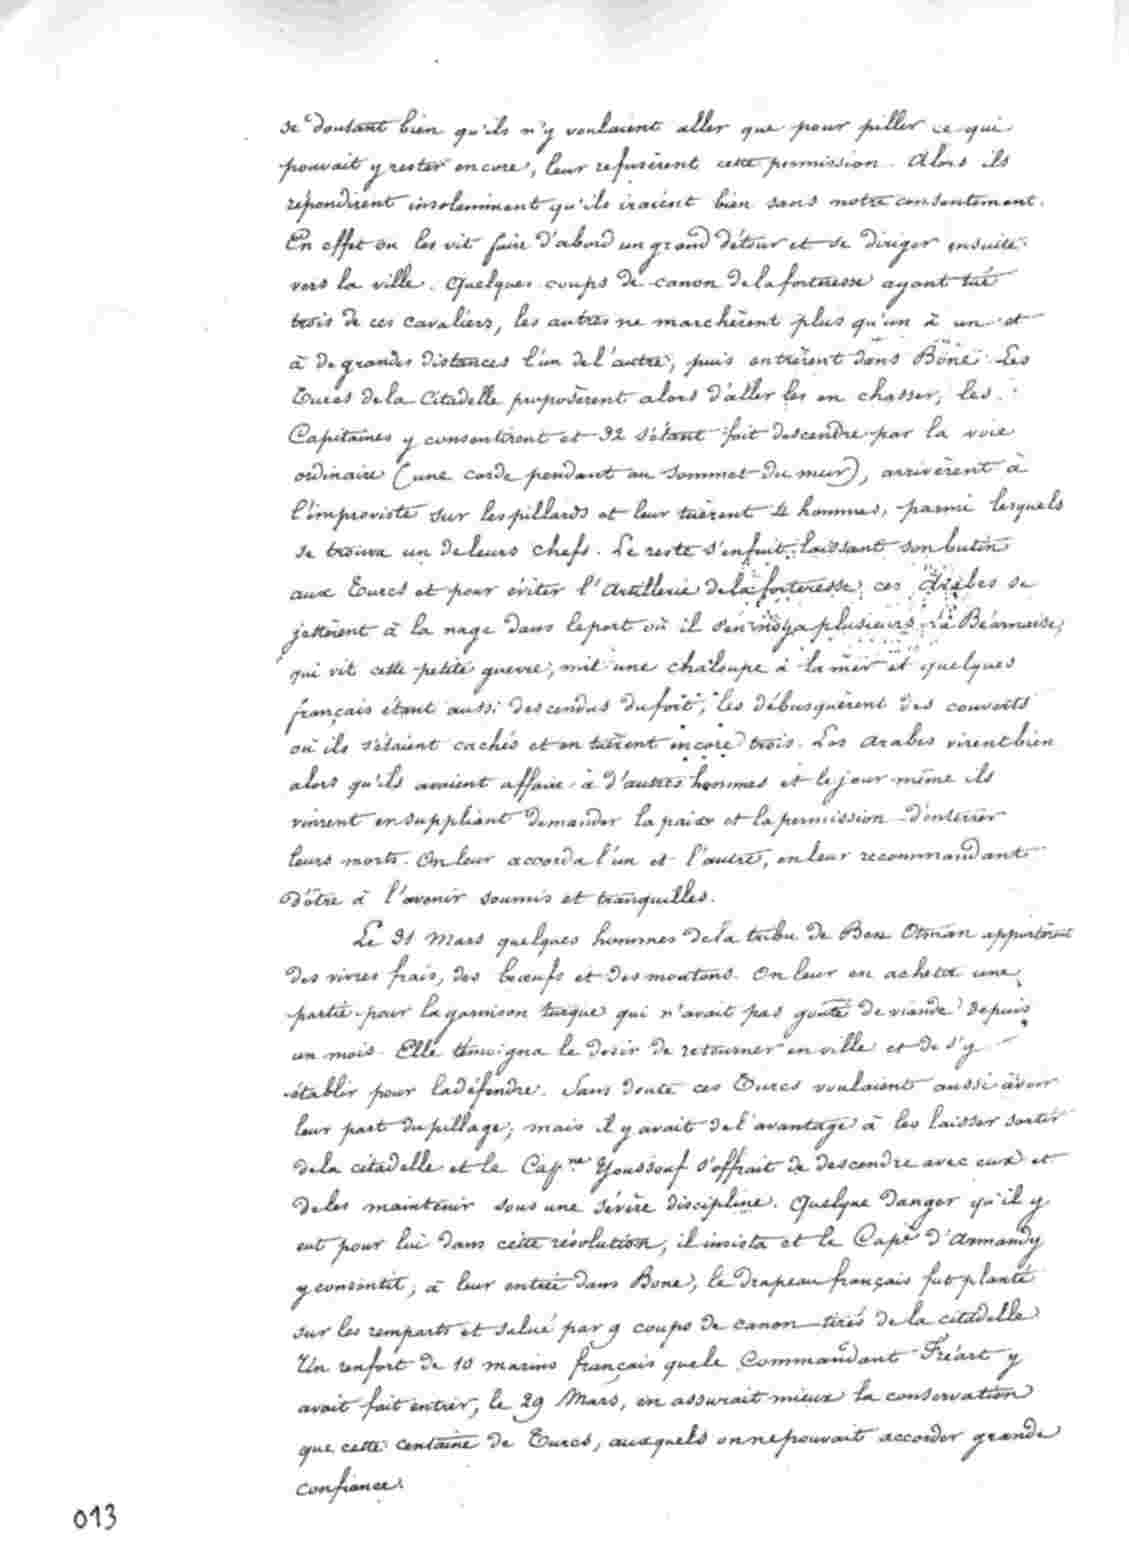 se doutant bien qu'ils n'y voulaient aller que pour piller ce qui
pouvait y rester encore, leur refusèrent cette permission. Alors ils
répondirent insolemment qu'ils iraient bien sans notre consentement.
En effet on les vit faire d'abord un grand détour et se diriger ensuite
vers la ville. Quelques coups de canon de la forteresse ayant tué
trois de ces cavaliers, les autres ne marchèrent plus qu'un à un et
à de grandes distances l'un de l'autre, puis entrèrent dans Bône. Les
Turcs de la Citadelle proposèrent alors d'aller les en chasser, les
Capitaines y consentirent et 32 s'étant fait descendre par la voie
ordinaire (une corde pendant au sommet du mur), arrivèrent à
l'improviste sur les pillards et leur tuèrent 4 hommes, parmi lesquels
se trouva un de leurs chefs. Le reste s'enfuit, laissant son butin
aux Turcs et pour éviter l'Artillerie de la forteresse, ces Arabes se
jettèrent à la nage dans le port où il s'en noya plusieurs. La Béarnaise,
qui vit cette petite guerre, mit une chaloupe à la mer et quelques
français étant aussi descendus du fort, les débusquèrent des couverts
où ils s'étaient cachés et en tuèrent encore trois. Les Arabes virent bien
alors qu'ils avaient affaire à d'autres hommes et le jour même ils
vinrent en suppliant demander la paix et la permission d'enterrer
leurs morts. On leur accorda l'un et l'autre, en leur recommandant
d'être à l'avenir soumis et tranquilles.
Le 31 Mars quelques hommes de la tribu de Ben Otman apportèrent
des vivres frais, des bœufs et des moutons. On leur en acheta une
partie pour la garnison turque qui n'avait pas goûté de viande depuis
un mois. Elle témoigna le désir de retourner en ville et de s'y
établir pour la défendre. Sans doute ces Turcs voulaient aussi avoir
leur part du pillage, mais il y avait de l'avantage à les laisser sortir
de la citadelle et le Capne Youssouf s'offrait de descendre avec eux et
de les maintenir sous une sévère discipline. Quelque danger qu'il y
eut pour lui dans cette résolution, il insista et le Cape d'Armandy
y consentit; à leur entrée dans Bone, le drapeau français fut planté
sur les remparts et salué par 9 coups de canon tirés de la citadelle
Un renfort de 10 marins français que le Commandant Fréart y
avait fait entrer, le 29 Mars, en assurait mieux la conservation
que cette centaine de Turcs, auxquels on ne pouvait accorder grande
confiance.
013